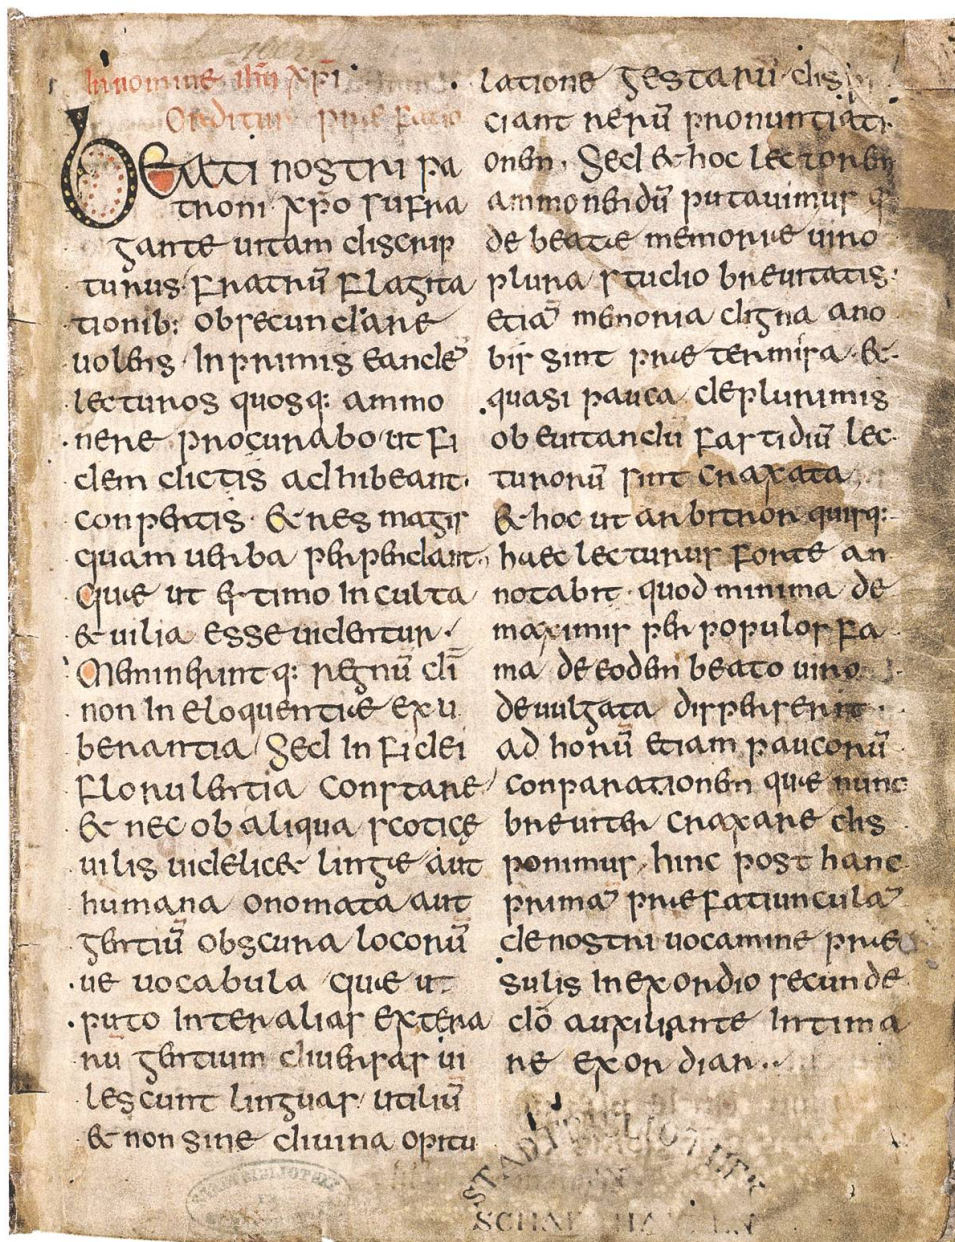 In nomine ihu xpi
Orditur praefatio
Beati nostri pa
troni xpo sufra
gante uitam discrip
turus fratrū flagita
tionib: obsecundare
uolens In primis eandē
lecturos quosq: ammo
nere procurabo ut fi
dem dictis adhibeant
conpertis & res magis
quam uerba perpendant
Quae ut estimo Inculta
& uilia esse uidentur
Meminerintq: regnū dī
non In eloquentiae exu
berantia Sed In fidei
florulentia constare
& nec ob aliqua scoticę
uilis uidelic& lingae aut
humana onomata aut
gentiū obscura locorū
ue uocabula quae ut
puto Inter alias extera
rū gentium diuersas ui
lescunt linguas utiliū
& non sine diuina opitu
latione gestarū dis
ciant rerū pronuntiati
onem Sed & hoc lectorem
ammonendū putauimus q
de beatae memoriae uiro
plura studio breuitatis
etiā memoria digna a no
bis sint praetermisa &
quasi pauca de plurimis
ob euitandū fastidiū lec
torū sint craxata
& hoc ut arbitror quisq:
haec lecturus forte an
notabit quod minima de
maximis per populos fa
ma de eodem beato uiro
deuulgata disperserit
ad horū etiam paucorū
conparationem quae nunc
breuiter craxare dis
ponimus hinc post hanc
primā praefatiunculā
de nostri uocamine prae
sulis In exordio secunde
dō auxiliante Intima
re exordiar
STADTBIBLIOTHEK
SCHAFFHAUSEN